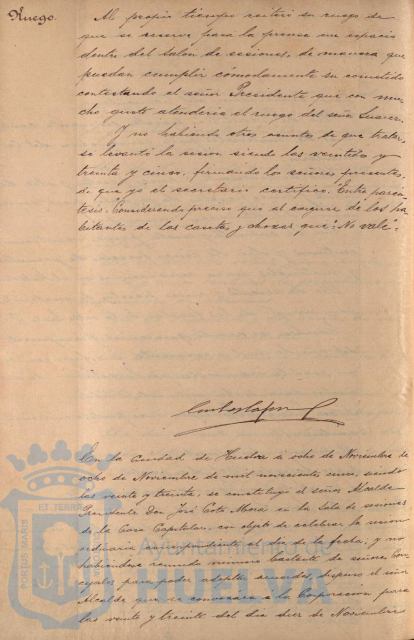 Ruego.
Al propio tiempo reiteró su ruego de
que se reserve para la prensa un espacio
dentro del Salon de sesiones, de manera que
puedan cumplir cómodamente su cometido
contestando el señor Presidente que con mu-
cho gusto atendería el ruego del señor Suarez.
Y no habiendo otros asuntos de que tratar,
se levantó la sesion siendo las veintidos y
treinta y cinco, firmando los señores presentes,
de que yo el secretario certifico. Entre parén-
tesis. Considerando preciso que al de los ha-
bitantes de las casetas y chozas que: No vale.
En la ciudad de Huelva á ocho de Noviembre de
ocho de Noviembre de mil novecientos once, siendo
las veinte y treinta, se constituyó el señor Alcalde
Presidente Don José Coto Mora en la Sala de sesiones
de la Casa Capitular, con objeto de celebrar la sesion
ordinaria correspondiente al día de la fecha, y no
habiendose reunido numero bastante de señores Con-
cejales para poder adoptar acuerdos, dispuso el señor
Alcalde que se convocára á la Corporacion para
las veinte y treinta del dia diez de Noviembre
PORTUS MARIS
ET TERRAE
Ayuntamiento de
HUELVA